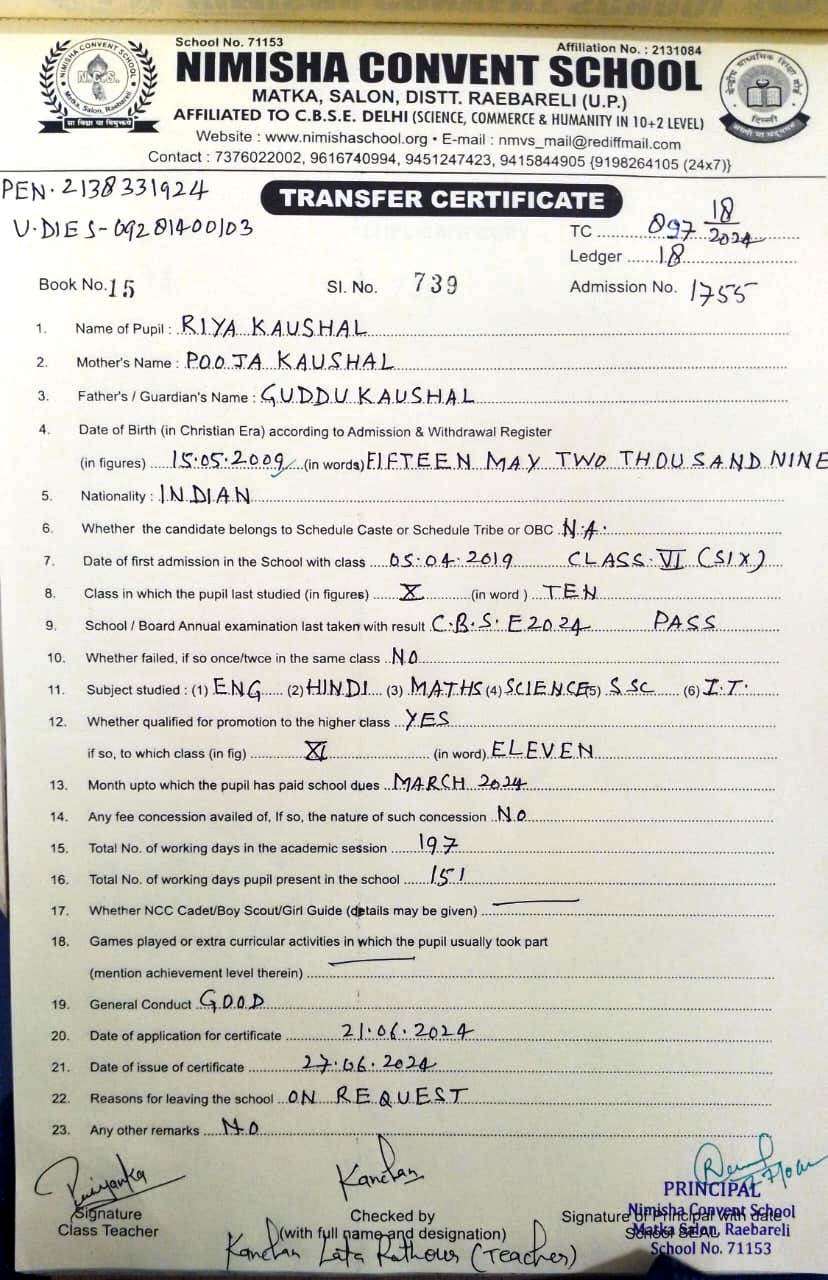 School No. 71153
Affiliation No. : 2131084
NIMISHA CONVENT SCHOOL
NIMISHA CONVENT SCHOOL
N.C.S.
Matka, Salon, Raebareli
सा विद्या या विमुक्तये
केन्द्रीय माध्यमिक शिक्षा बोर्ड
दिल्ली
असतो मा सद्गमय
MATKA, SALON, DISTT. RAEBARELI (U.P.)
AFFILIATED TO C.B.S.E. DELHI (SCIENCE, COMMERCE & HUMANITY IN 10+2 LEVEL)
Website : www.nimishaschool.org • E-mail : nmvs_mail@rediffmail.com
Contact : 7376022002, 9616740994, 9451247423, 9415844905 {9198264105 (24x7)}
PEN. 2138331924
TRANSFER CERTIFICATE
U.DIES-09281400103
TC 897 18/2024
Ledger 18
Book No. 15 Sl. No. 739 Admission No. 1755
1. Name of Pupil : RIYA KAUSHAL
2. Mother's Name : POOJA KAUSHAL
3. Father's / Guardian's Name : GUDDU KAUSHAL
4. Date of Birth (in Christian Era) according to Admission & Withdrawal Register
(in figures) 15.05.2009 (in words) FIFTEEN MAY TWO THOUSAND NINE
5. Nationality : INDIAN
6. Whether the candidate belongs to Schedule Caste or Schedule Tribe or OBC N.A.
7. Date of first admission in the School with class 05.04.2019 CLASS.VI (SIX)
8. Class in which the pupil last studied (in figures) X (in word ) TEN
9. School / Board Annual examination last taken with result C.B.S.E 2024 PASS
10. Whether failed, if so once/twce in the same class NO
11. Subject studied : (1) ENG (2) HINDI (3) MATHS (4) SCIENCE (5) SSC (6) I.T.
12. Whether qualified for promotion to the higher class YES
if so, to which class (in fig) XI (in word) ELEVEN
13. Month upto which the pupil has paid school dues MARCH 2024
14. Any fee concession availed of, If so, the nature of such concession NO
15. Total No. of working days in the academic session 197
16. Total No. of working days pupil present in the school 151
17. Whether NCC Cadet/Boy Scout/Girl Guide (details may be given)
18. Games played or extra curricular activities in which the pupil usually took part
(mention achievement level therein)
19. General Conduct GOOD
20. Date of application for certificate 21.06.2024
21. Date of issue of certificate 27.06.2024
22. Reasons for leaving the school ON REQUEST
23. Any other remarks NO
Priyanka
Kanchan
Signature
Class Teacher
Checked by
(with full name and designation)
Kanchan Lata Rathour (Teacher)
Signature of Principal with date
School SEAL
PRINCIPAL
Nimisha Convent School
Matka Salon, Raebareli
School No. 71153